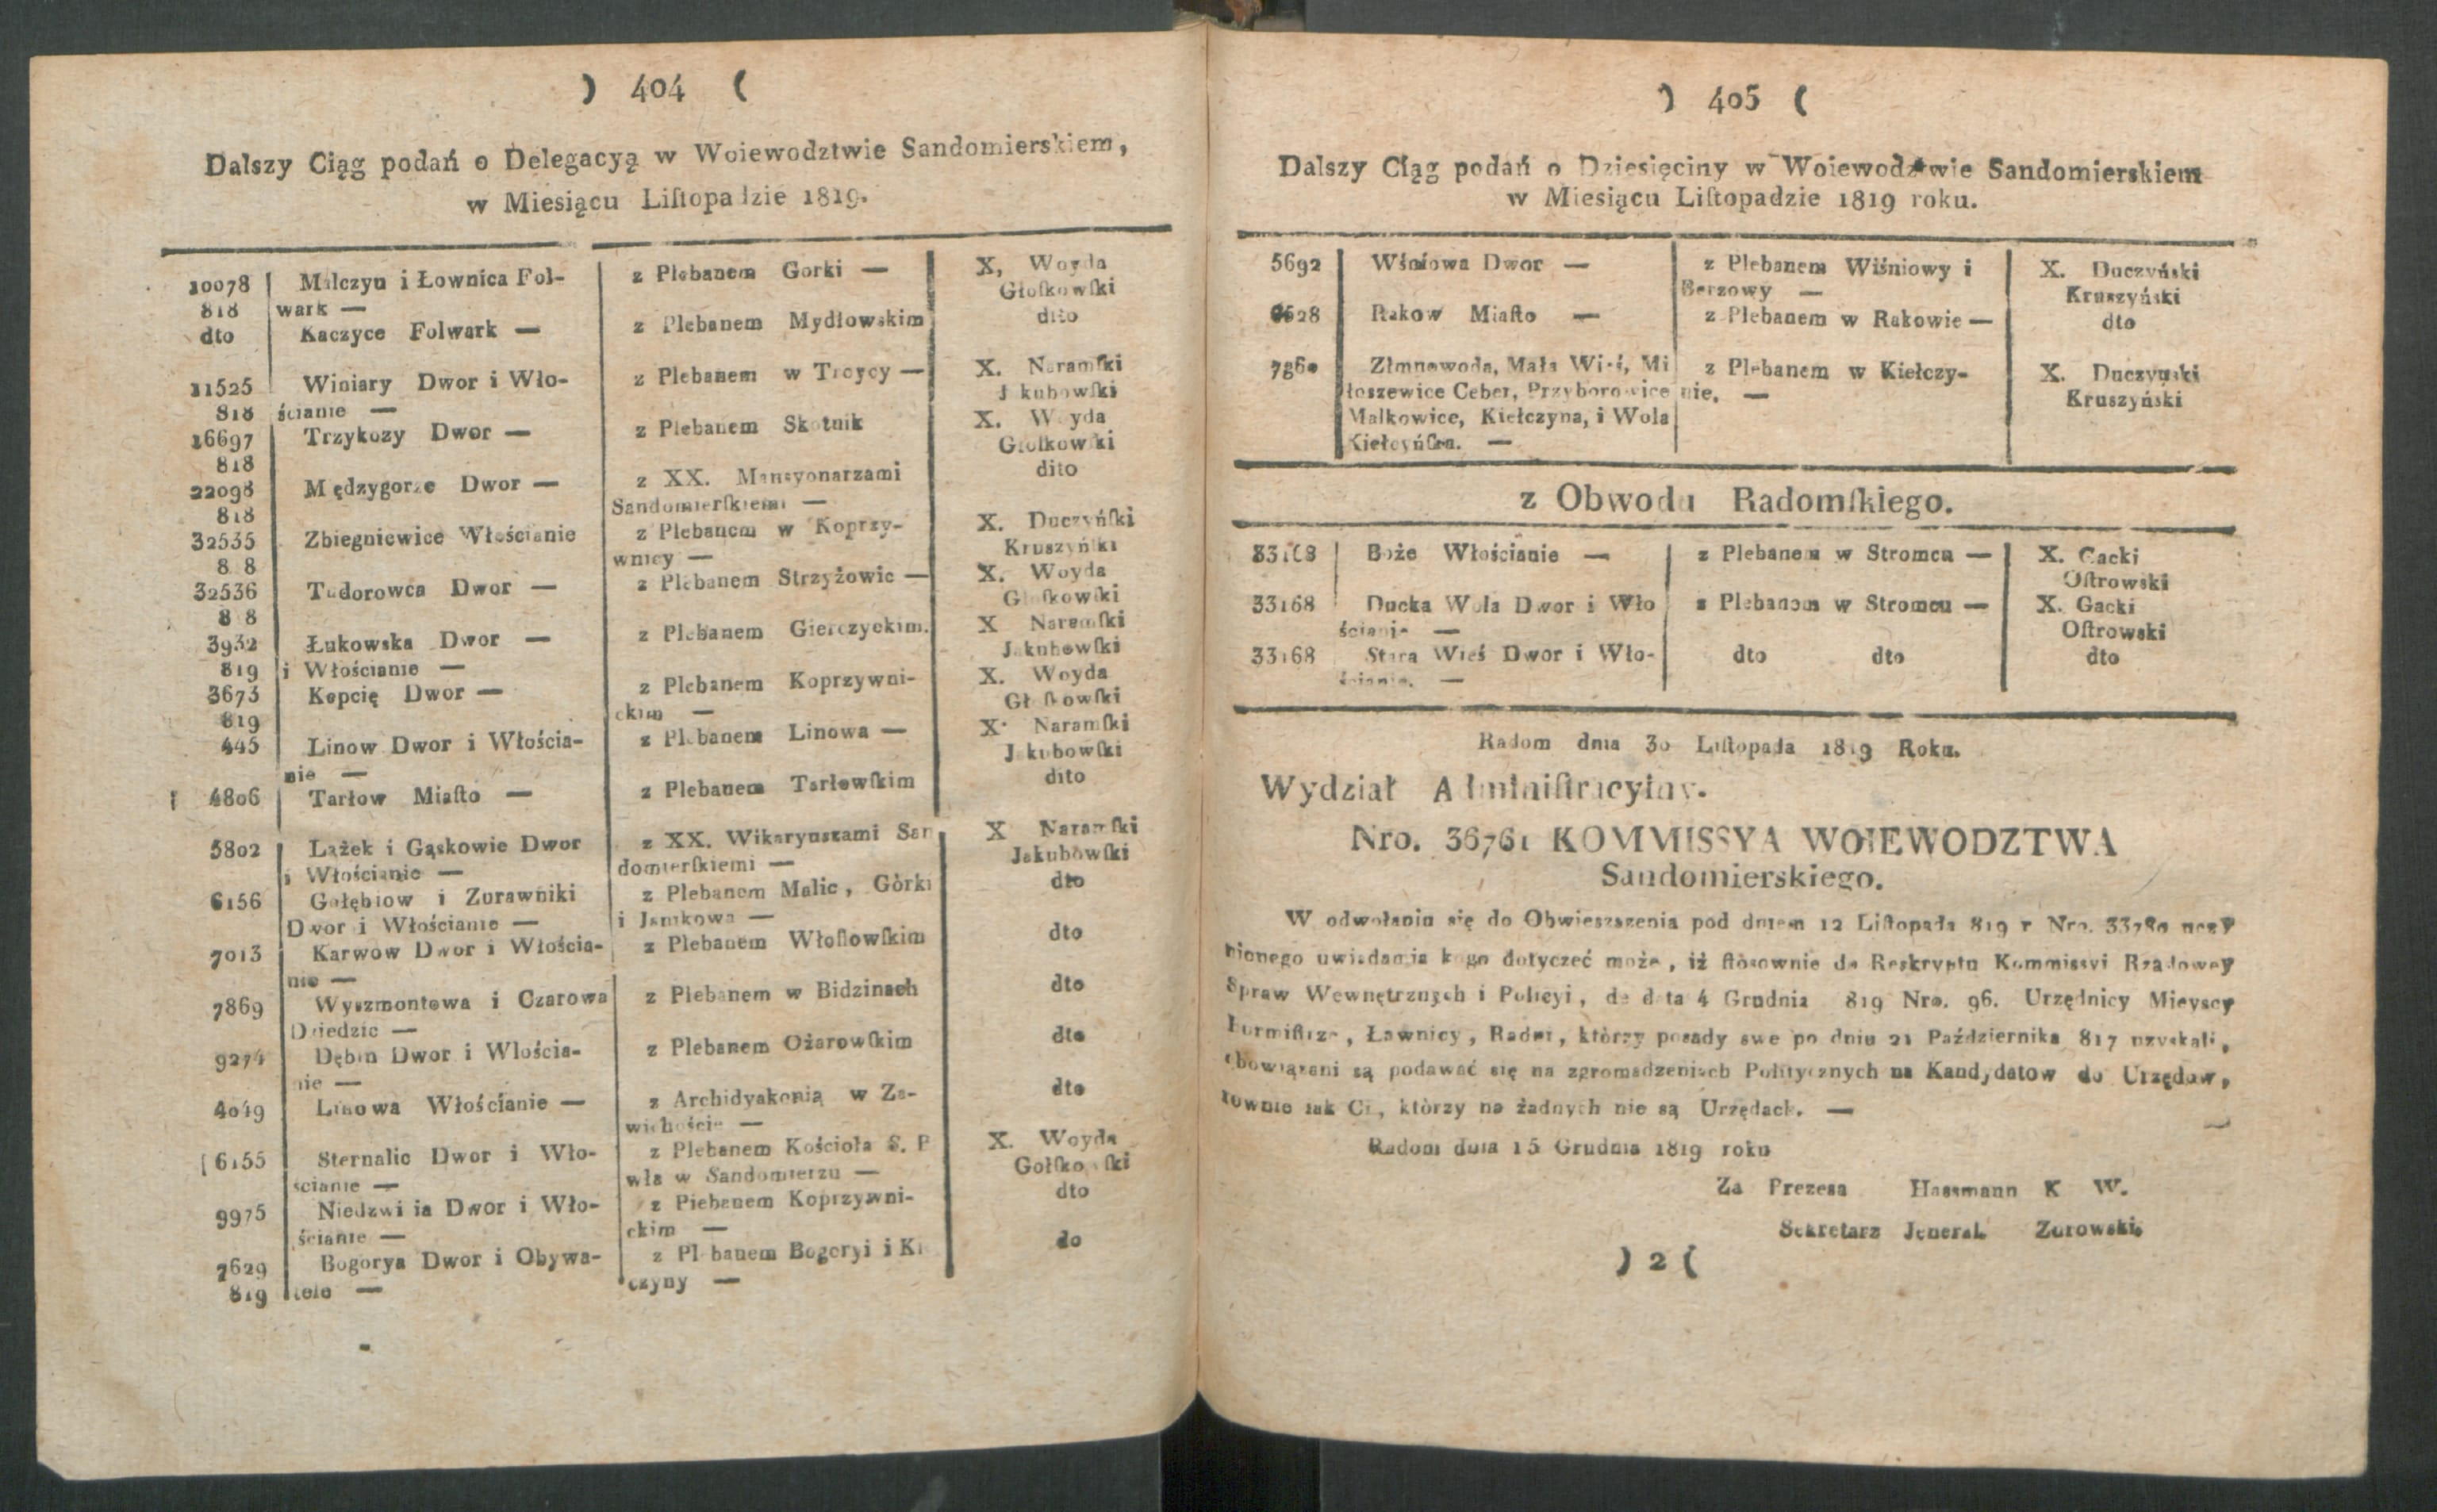 ) 404 (
Dalszy Ciąg podań o Delegacyą w Woiewodztwie Sandomierskiem,
w Miesiącu Liſtopadzie 1819.
10078 Malczyn i Łownica Fol- z Plebanem Gorki — X, Woyda
818 wark — Głoſkowſki
dto Kaczyce Folwark — z Plebanem Mydłowskim dito
11525 Winiary Dwor i Wło- z Plebanem w Troycy — X. Naramſki
818 ścianie — Jakubowſki
16697 Trzykozy Dwor — z Plebanem Skotnik X. Woyda
818 Głoſkowſki
22098 Międzygorze Dwor — z XX. Mansyonarzami dito
818 Sandomierſkiemi —
32535 Zbiegniewice Włościanie z Plebanem w Koprzy- X. Duczyńſki
8 8 wnicy — Kruszyńſki
32536 Tudorowca Dwor — z Plebanem Strzyżowic — X. Woyda
8 8 Głoſkowſki
3932 Łukowska Dwor — z Plebanem Gierczyckim. X Naramſki
819 i Włościanie — Jakubowſki
3673 Kępcię Dwor — z Plebanem Koprzywni- X. Woyda
819 ckim — Głoſkowſki
445 Linow Dwor i Włościa- z Plebanem Linowa — X. Naramſki
nie — Jakubowſki
4806 Tarłow Miaſto — z Plebanem Tarłowſkim dito
5802 Lążek i Gąskowie Dwor z XX. Wikaryuszami San X Naramſki
i Włościanie — domierſkiemi — Jakubowſki
6156 Gołębiow i Zurawniki z Plebanem Malic, Górki dto
Dwor i Włościanie — i Janikowa —
7013 Karwow Dwor i Włościa- z Plebanem Włoſtowſkim dto
nie —
7869 Wyszmontowa i Czarowa z Plebanem w Bidzinach dto
Dziedzic —
9274 Dębin Dwor i Wlościa- z Plebanem Ożarowſkim dto
nie —
4049 Linowa Włościanie — z Archidyakonią w Za- dto
wichoście —
6155 Sternalic Dwor i Wło- z Plebanem Kościoła S. P X. Woyda
ścianie — wła w Sandomierzu — Gołſkowſki
9975 Niedzwi ia Dwor i Wło- z Plebanem Koprzywni- dto
ścianie — ckim —
7629 Bogorya Dwor i Obywa- z Plebanem Bogoryi i Ki do
819 tele — czyny —
) 405 (
Dalszy Ciąg podań o Dziesięciny w Woiewodztwie Sandomierskiem
w Miesiącu Liſtopadzie 1819 roku.
5692 Wśniowa Dwor — z Plebanem Wiśniowy i X. Duczyński
Berzowy — Kruszyński
6528 Rakow Miaſto — z Plebanem w Rakowie — dto
7860 Zimnowoda, Mała Wieś, Mi z Plebanem w Kiełczy- X. Duczyński
łoszewice Ceber, Przyborowice nie. — Kruszyński
Malkowice, Kiełczyna, i Wola
Kiełcyńſka. —
z Obwodu Radomſkiego.
33168 Boże Włościanie — z Plebanem w Stromcu — X. Gacki
Oſtrowski
33168 Ducka Wola Dwor i Wło z Plebanem w Stromcu — X. Gacki
ścianie — Oſtrowski
33168 Stara Wieś Dwor i Wło- dto dto dto
ścianie. —
Radom dnia 30 Liſtopada 1819 Roku.
Wydział Adminiſtracyiny.
Nro. 36761 KOMMISSYA WOIEWODZTWA
Sandomierskiego.
W odwołaniu się do Obwieszszenia pod dniem 12 Liſtopada 819 r Nro. 33780 uczy
nionego uwiadamia kogo dotyczeć może, iż ſtósownie do Reskryptu Kommissyi Rządowey
Spraw Wewnętrznych i Policyi, de data 4 Grudnia 819 Nro. 96. Urzędnicy Mieyscy
Burmiſtrze, Ławnicy, Radni, którzy posady swe po dniu 21 Października 817 uzyskali,
obowiązani są podawać się na zgromadzeniach Politycznych na Kandydatow do Urzędow,
rownie iak Ci, którzy na żadnych nie są Urzędach. —
Radom dnia 15 Grudnia 1819 roku
Za Prezesa Hassmann K W.
Sekretarz Jeneral. Zurowski.
) 2 (